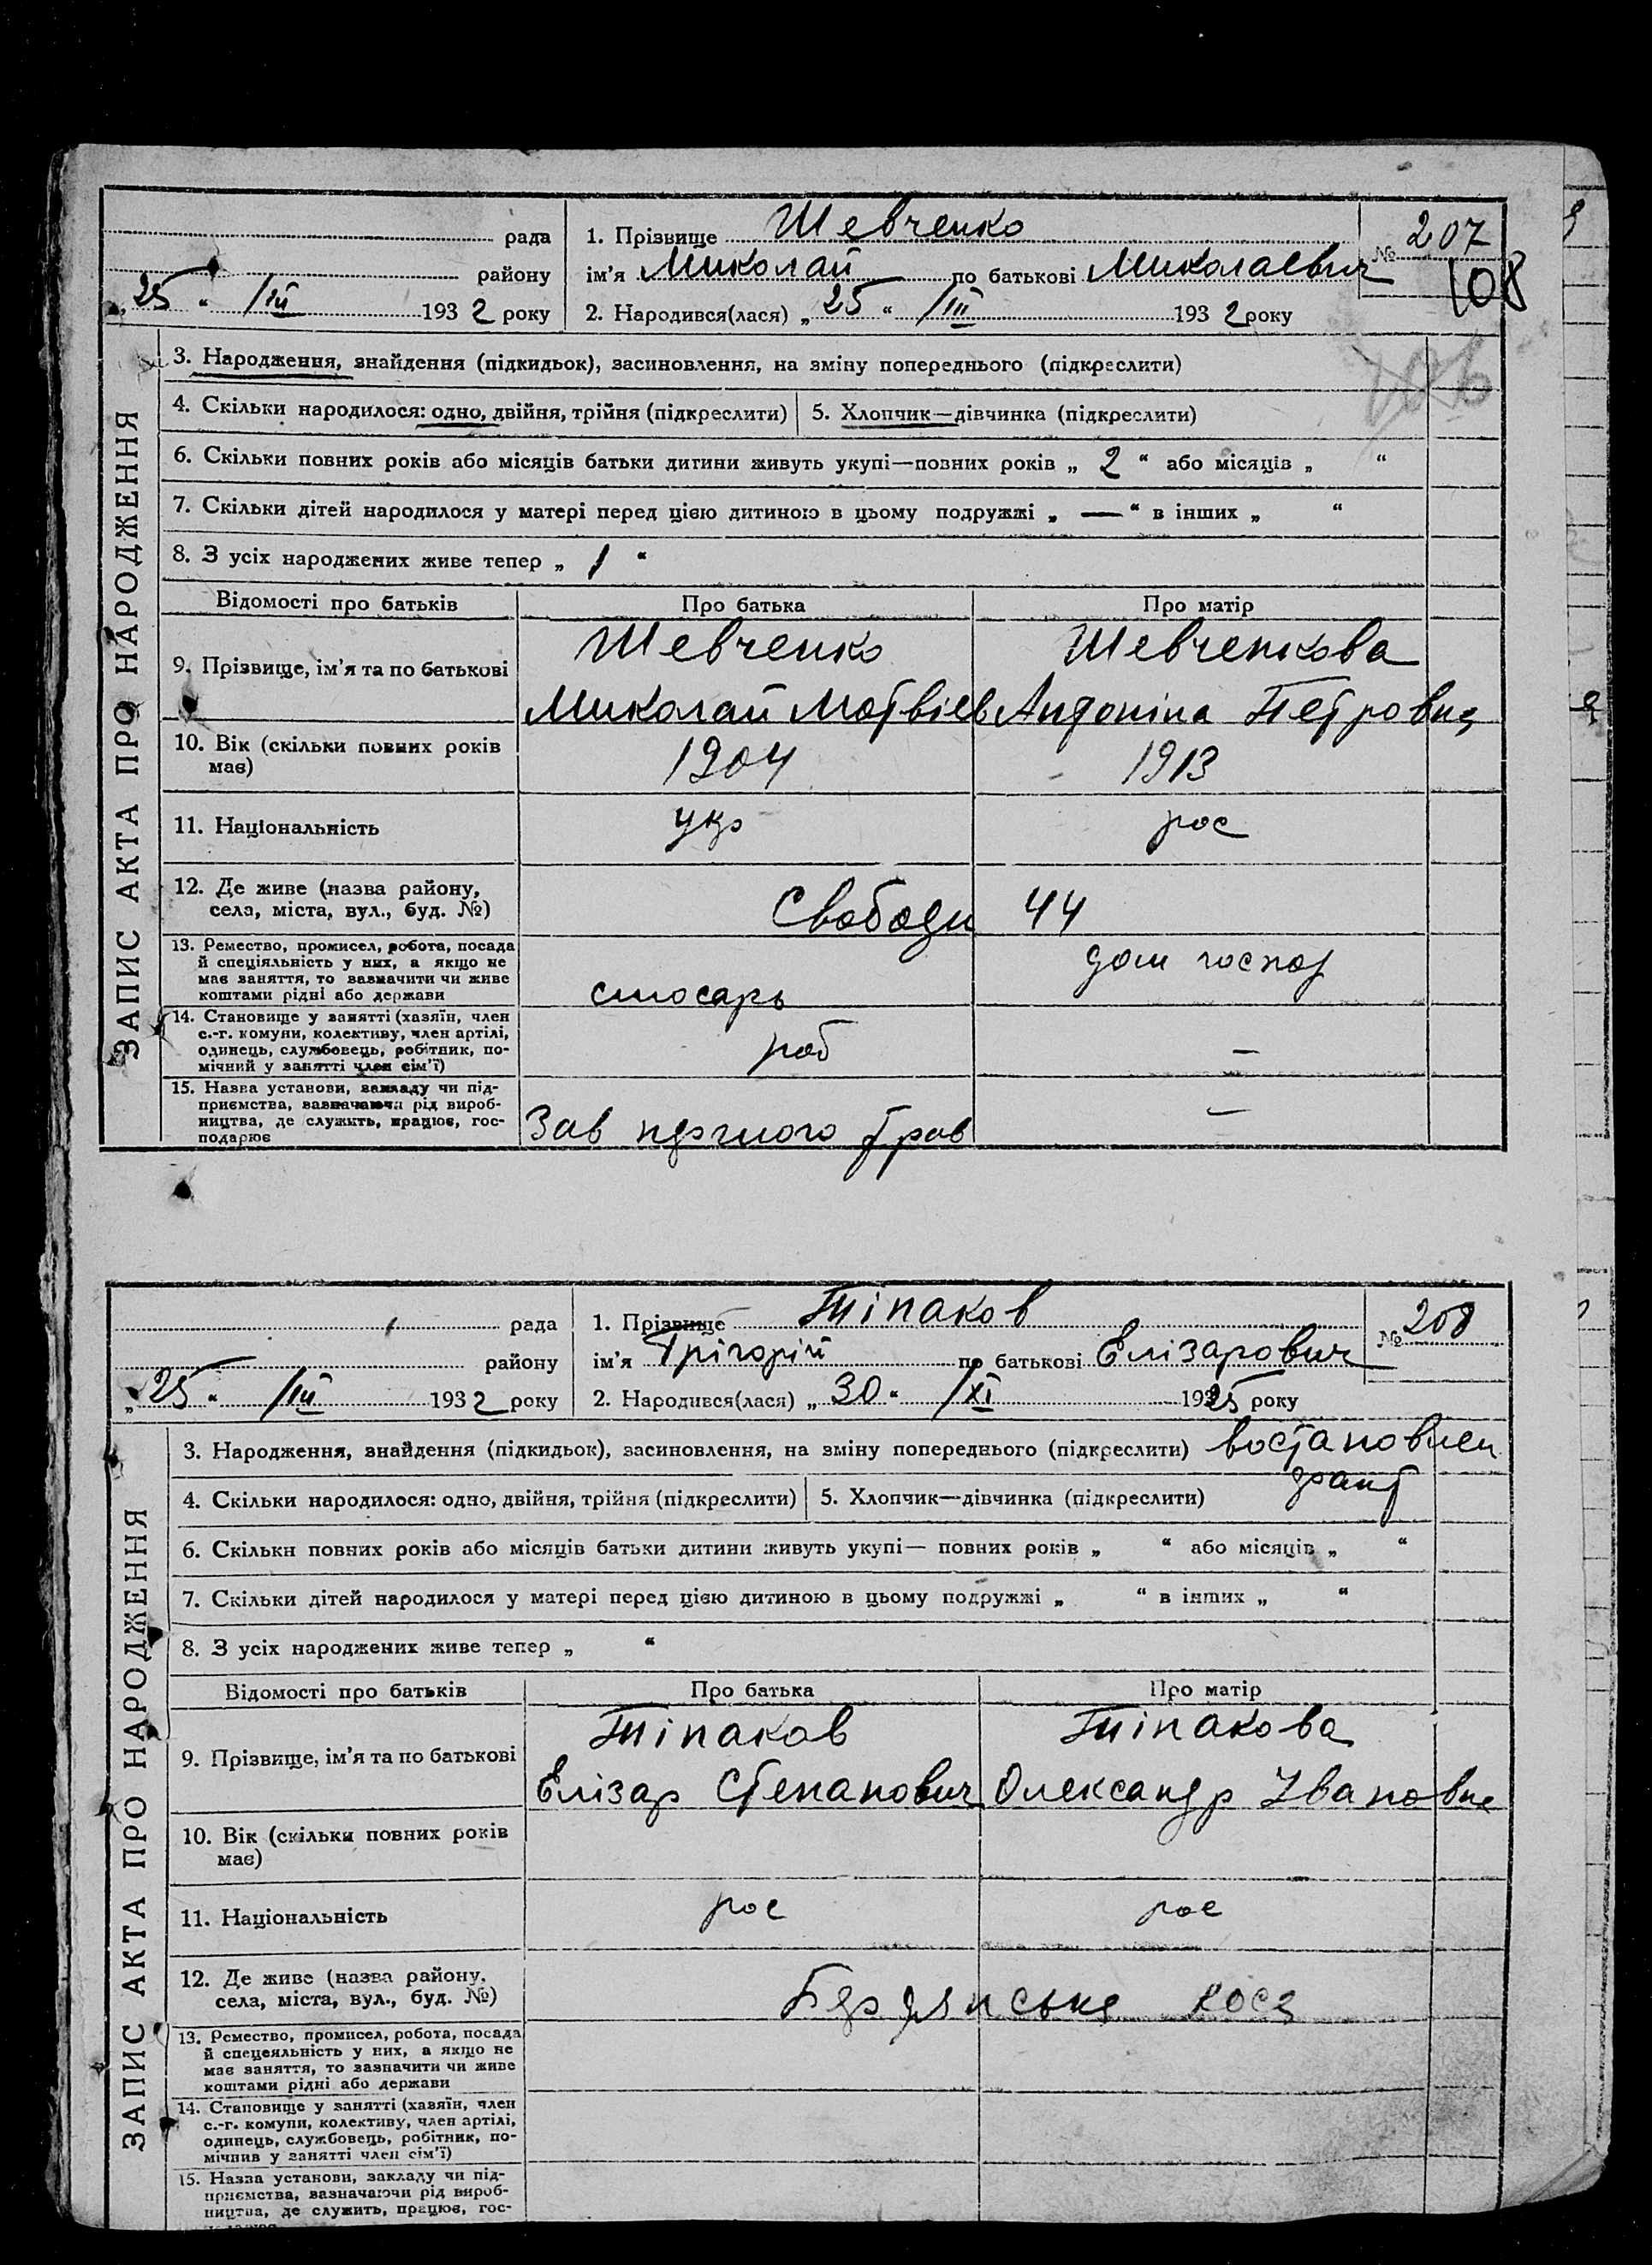 рада
1. Прізвище Шевченко
№ 207
району
ім'я Миколай по батькові Миколаевич
108
„25“ /III 1932 року
2. Народився(лася) „25“ /III 1932 року
ЗАПИС АКТА ПРО НАРОДЖЕННЯ
3. Народження, знайдення (підкидьок), засиновлення, на зміну попереднього (підкреслити)
106
4. Скільки народилося: одно, двійня, трійня (підкреслити)
5. Хлопчик—дівчинка (підкреслити)
6. Скільки повних років або місяців батьки дитини живуть укупі—повних років „ 2 “ або місяців „ “
7. Скільки дітей народилося у матері перед цією дитиною в цьому подружжі „ — “ в інших „ “
8. З усіх народжених живе тепер „ 1 “
Відомості про батьків
Про батька
Про матір
9. Прізвище, ім'я та по батькові
Шевченко
Миколай Мотвіев
Шевченкова
Антоніна Петровна
10. Вік (скільки повних років
має)
1904
1913
11. Національність
укр
рос
12. Де живе (назва району,
села, міста, вул., буд. №)
Свободи 44
13. Ремество, промисел, робота, посада
й спеціяльність у них, а якщо не
має заняття, то зазначити чи живе
коштами рідні або держави
слюсарь
дом господ
14. Становище у занятті (хазяїн, член
с.-г. комуни, колективу, член артілі,
одинець, службовець, робітник, по-
мічний у занятті член сім'ї)
роб
—
15. Назва установи, закладу чи під-
приємства, зазначаючи рід вироб-
ництва, де служить, працює, гос-
подарює
Зав першого трав
—
рада
1. Прізвище Тіпаков
№ 208
району
ім'я Грігорій по батькові Елізарович
„25“ /III 1932 року
2. Народився(лася) „30“ /XI 1925 року
ЗАПИС АКТА ПРО НАРОДЖЕННЯ
3. Народження, знайдення (підкидьок), засиновлення, на зміну попереднього (підкреслити) востановлен
4. Скільки народилося: одно, двійня, трійня (підкреслити)
5. Хлопчик—дівчинка (підкреслити)
6. Скільки повних років або місяців батьки дитини живуть укупі— повних років „ “ або місяців „ “
7. Скільки дітей народилося у матері перед цією дитиною в цьому подружжі „ “ в інших „ “
8. З усіх народжених живе тепер „ “
Відомості про батьків
Про батька
Про матір
9. Прізвище, ім'я та по батькові
Тіпаков
Елізар Степанович
Тіпакова
Олександр Івановна
10. Вік (скільки повних років
має)
11. Національність
рос
рос
12. Де живе (назва району,
села, міста, вул., буд. №)
Бердянська коса
13. Ремество, промисел, робота, посада
й спецеяльність у них, а якщо не
має заняття, то зазначити чи живе
коштами рідні або держави
14. Становище у занятті (хазяїн, член
с.-г. комуни, колективу, член артілі,
одинець, службовець, робітник, по-
мічнив у занятті член сім'ї)
15. Назва установи, закладу чи під-
приємства, зазначаючи рід вироб-
ництва, де служить, працює, гос-